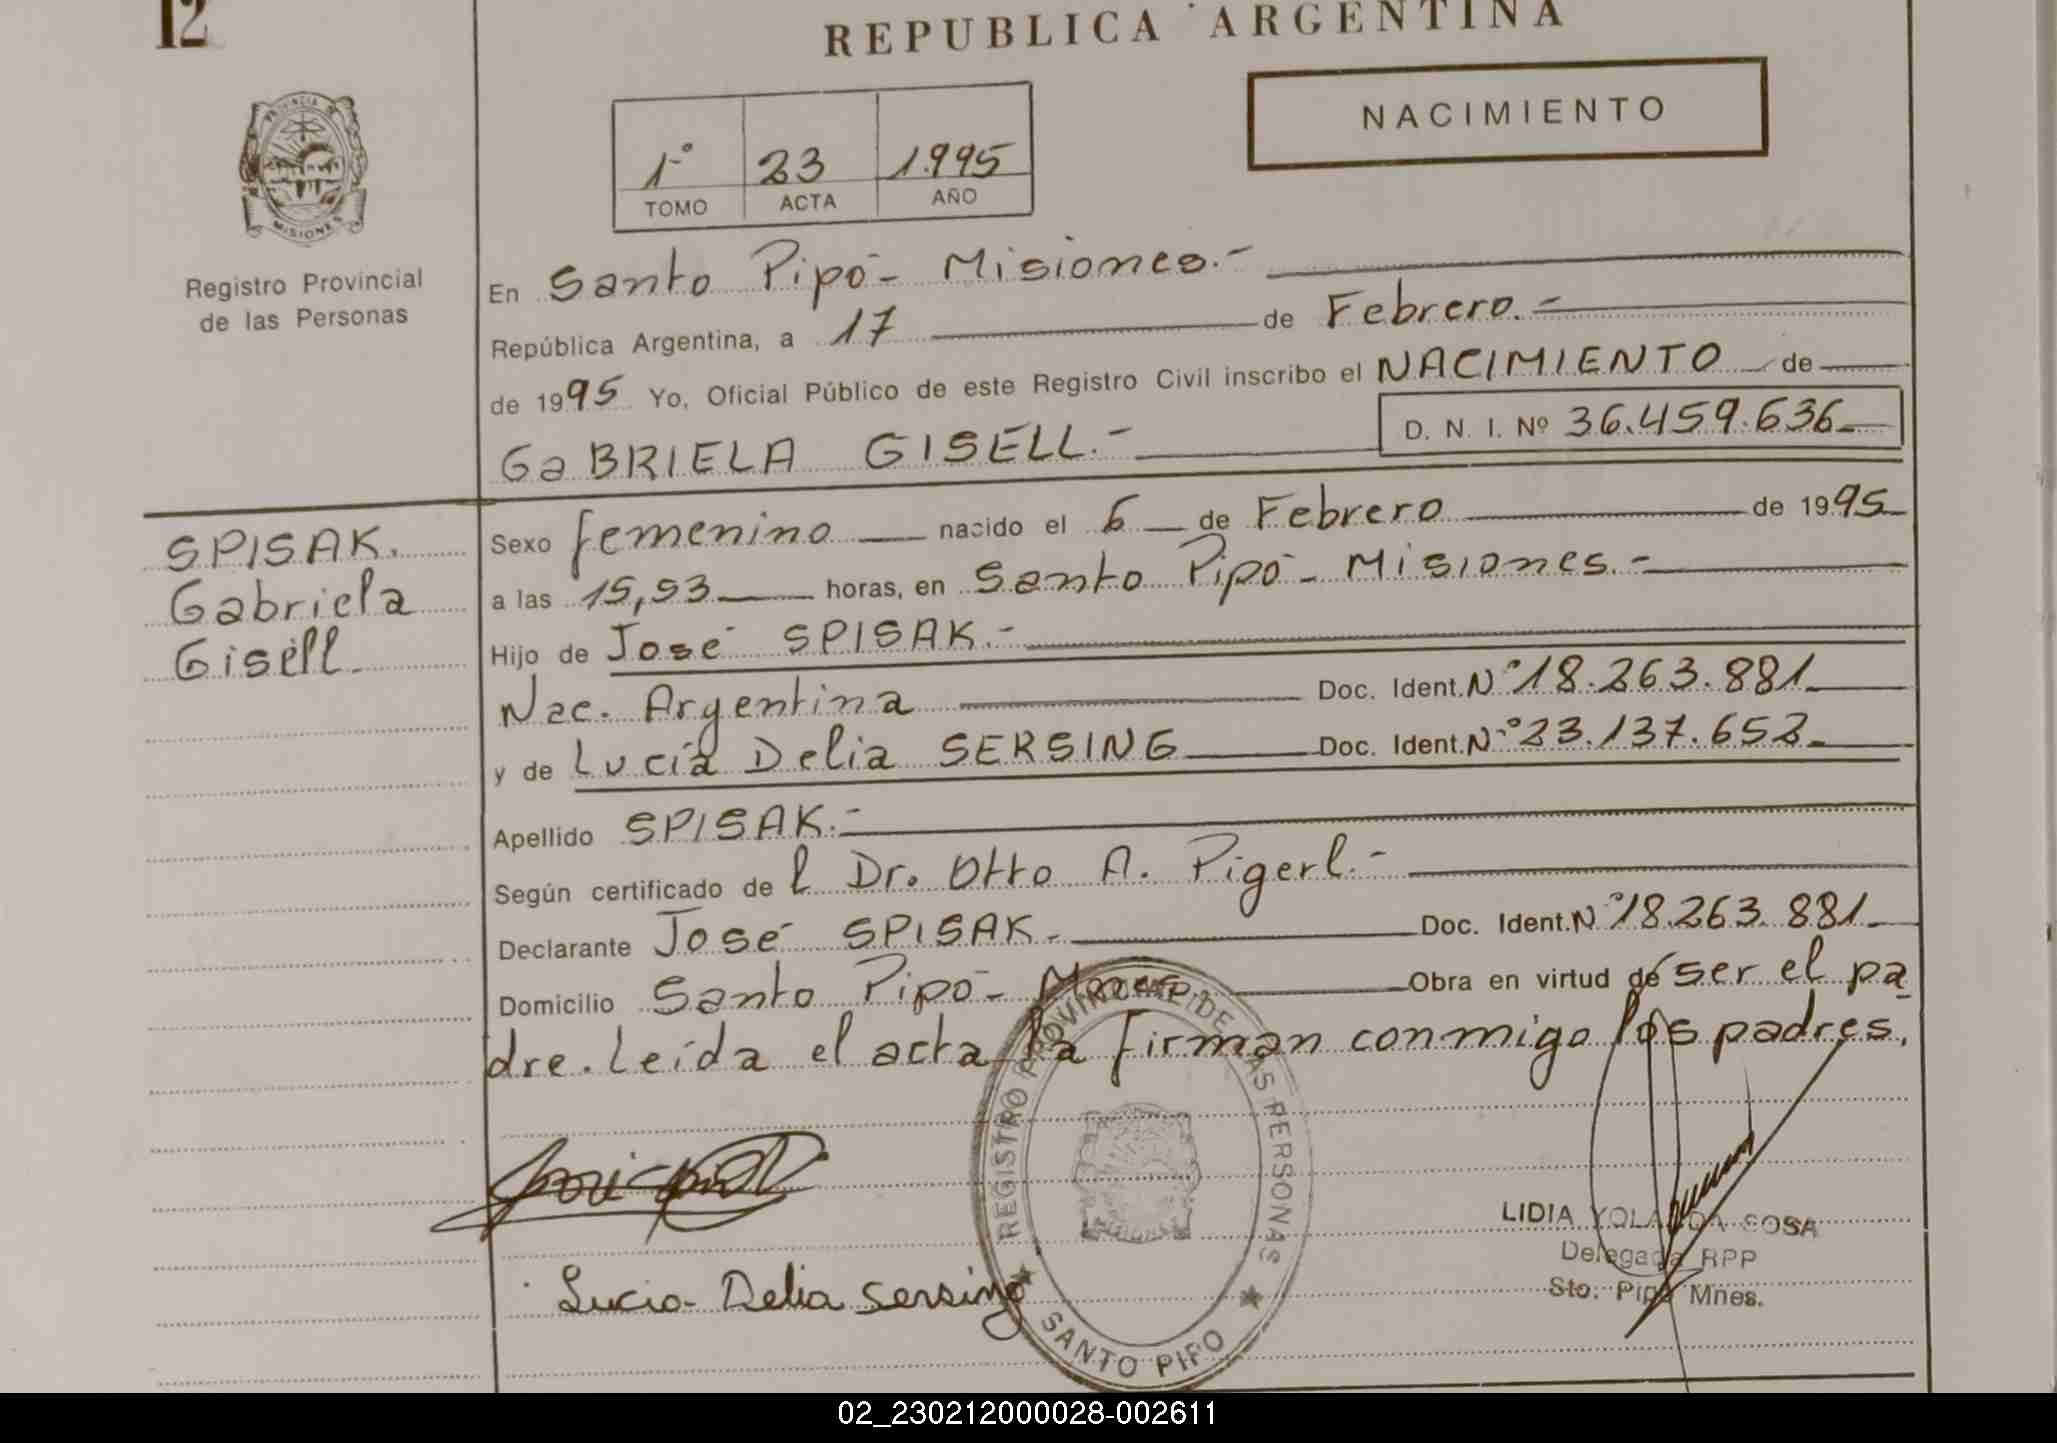 12
REPUBLICA ARGENTINA
NACIMIENTO
1º 23 1.995
TOMO ACTA AÑO
PROVINCIA
MISIONES
Registro Provincial
de las Personas
En Santo Pipó - Misiones.-
República Argentina, a 17 de Febrero.-
de 1995 Yo, Oficial Público de este Registro Civil inscribo el NACIMIENTO de
GaBRIELA GISELL.- D. N. I. Nº 36.459.636
SPISAK.
Gabriela
Gisell.
Sexo femenino nacido el 6 de Febrero de 1995
a las 15,53 horas, en Santo Pipó - Misiones.-
Hijo de José SPISAK.-
Nac. Argentina Doc. Ident. Nº 18.263.881
y de Lucía Delia SERSING Doc. Ident. Nº 23.137.652
Apellido SPISAK.-
Según certificado de l Dr. Otto A. Pigerl.-
Declarante José SPISAK.- Doc. Ident. Nº 18.263.881
Domicilio Santo Pipó - Mnes. Obra en virtud de ser el pa
dre. Leída el acta la firman conmigo los padres.
REGISTRO PROVINCIAL DE LAS PERSONAS
SANTO PIPO
LIDIA YOLANDA SOSA
Delegada RPP
Sto. Pipó Mnes.
Lucia Delia Sersing
02_230212000028-002611